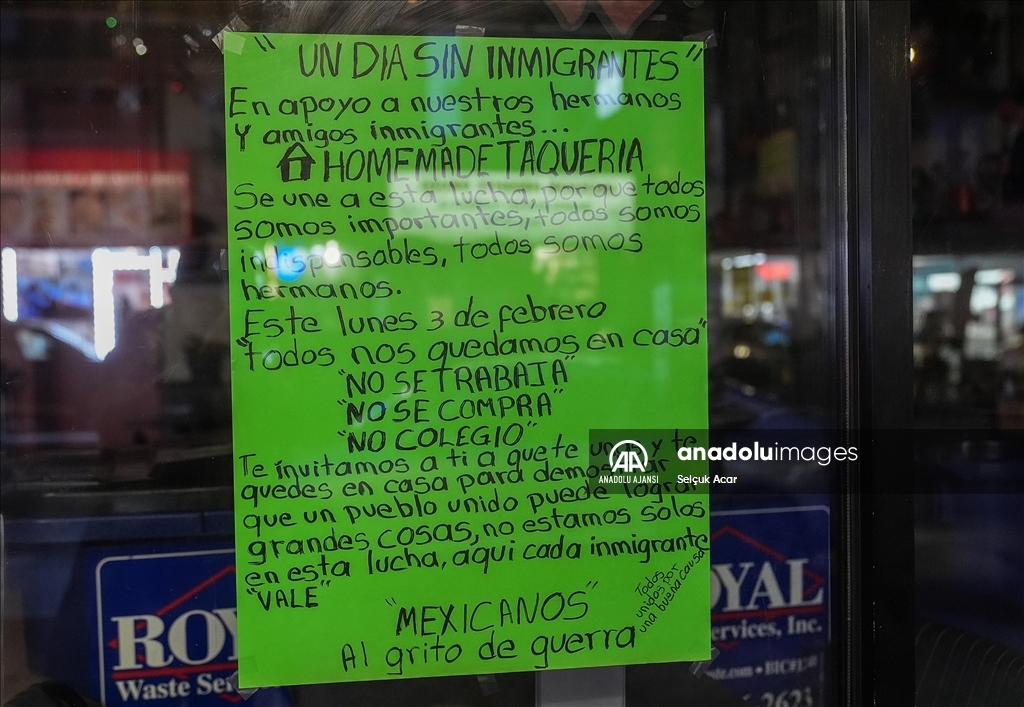 "UN DIA SIN INMIGRANTES"
En apoyo a nuestros hermanos
Y amigos inmigrantes...
HOMEMADE TAQUERIA
Se une a esta lucha, por que todos
somos importantes, todos somos
indispensables, todos somos
hermanos.
Este lunes 3 de febrero
"Todos nos quedamos en casa"
"NO SE TRABAJA"
"NO SE COMPRA"
"NO COLEGIO"
Te invitamos a ti a que te unas y te
quedes en casa para demostrar
que un pueblo unido puede lograr
grandes cosas, no estamos solos
en esta lucha, aqui cada inmigrante
"VALE"
Todos
unidos por
una buena causa
"MEXICANOS"
Al grito de guerra
AA
ANADOLU AJANSI
anadoluimages
Selçuk Acar
ROY
Waste Ser
OYAL
ervices, Inc.